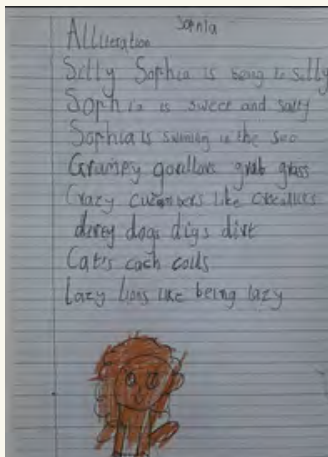 Sophia
Alliteration
Silly Sophia is being to silly
Sophia is sweet and salty
Sophia is swiming in the sea
Grampey gorillars grab grass
Crazy cucumbers like
dirtey dogs digs dirt
Cat's cach
Lazy lions like being lazy